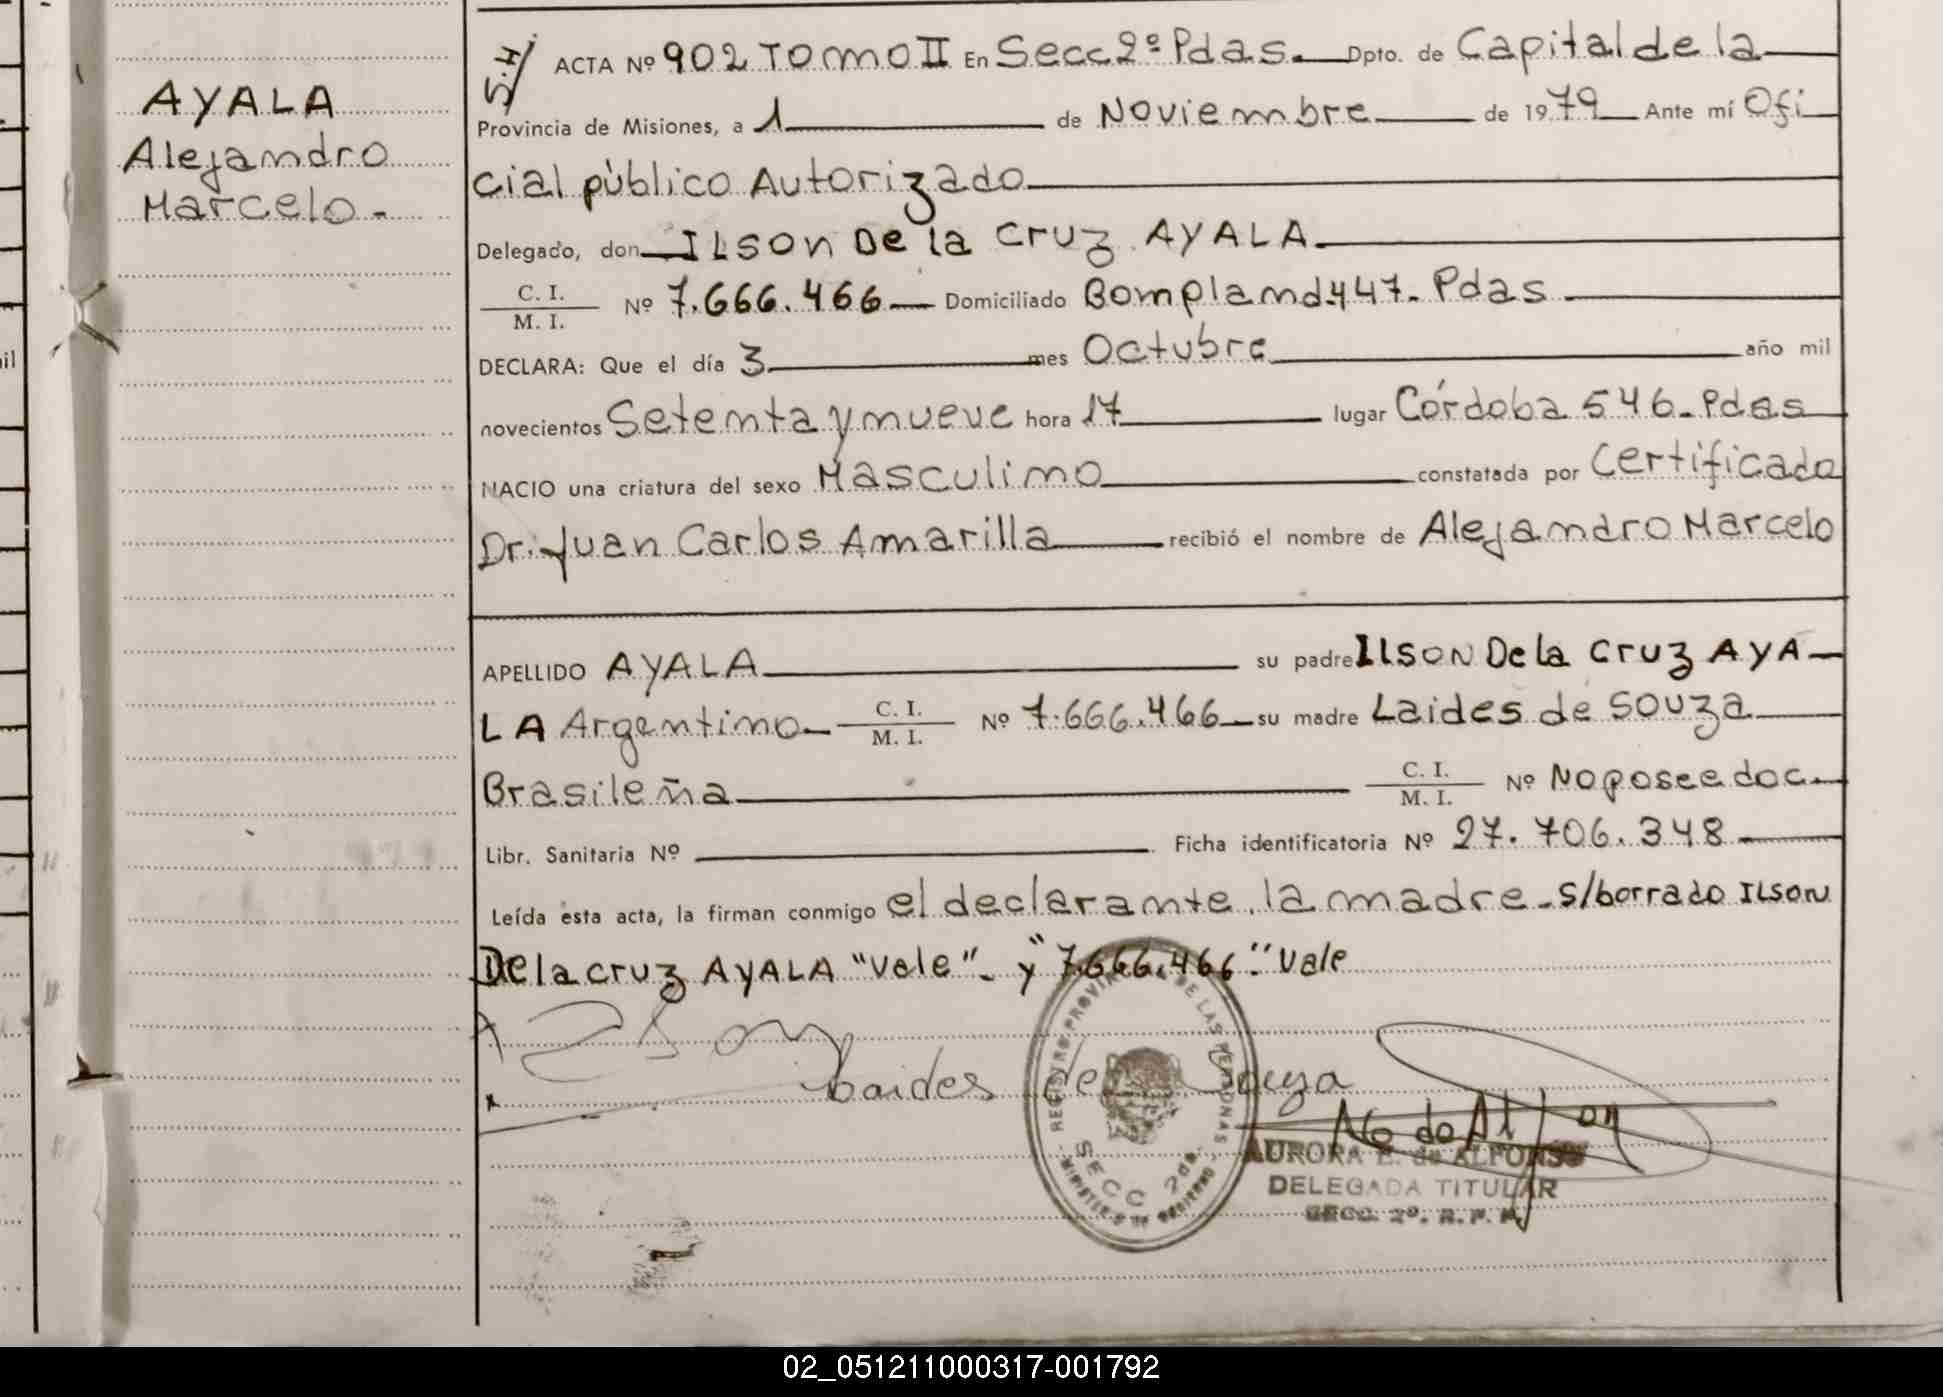 AYALA
Alejandro
Marcelo.-
ACTA Nº 902 Tomo II En Secc 2º Pdas. Dpto. de Capital de la
Provincia de Misiones, a 1 de Noviembre de 1979 Ante mí Ofi
cial público Autorizado
Delegado, don ILSON De la Cruz AYALA.
C. I.
M. I.
Nº 7.666.466 Domiciliado Bompland 447. Pdas
DECLARA: Que el día 3 mes Octubre año mil
novecientos Setenta y nueve hora 17 lugar Córdoba 546. Pdas
NACIO una criatura del sexo Masculino constatada por Certificado
Dr. Juan Carlos Amarilla recibió el nombre de Alejandro Marcelo
APELLIDO AYALA su padre ILSON De la Cruz AYA
LA Argentino C. I. M. I. Nº 7.666.466 su madre Laides de Souza
Brasileña C. I. M. I. Nº No posee doc.
Libr. Sanitaria Nº Ficha identificatoria Nº 27.706.348
Leída esta acta, la firman conmigo el declarante, la madre. S/borrado ILSON
De la Cruz AYALA "Vale". y "7.666.466." Vale
Ilson
Laides de Souza
REGISTRO PROVINCIAL DE LAS PERSONAS
SECC 2da.
MINISTERIO DE GOBIERNO
AURORA E. de ALFONSO
DELEGADA TITULAR
SECC. 2º. R. P. P.
02_051211000317-001792